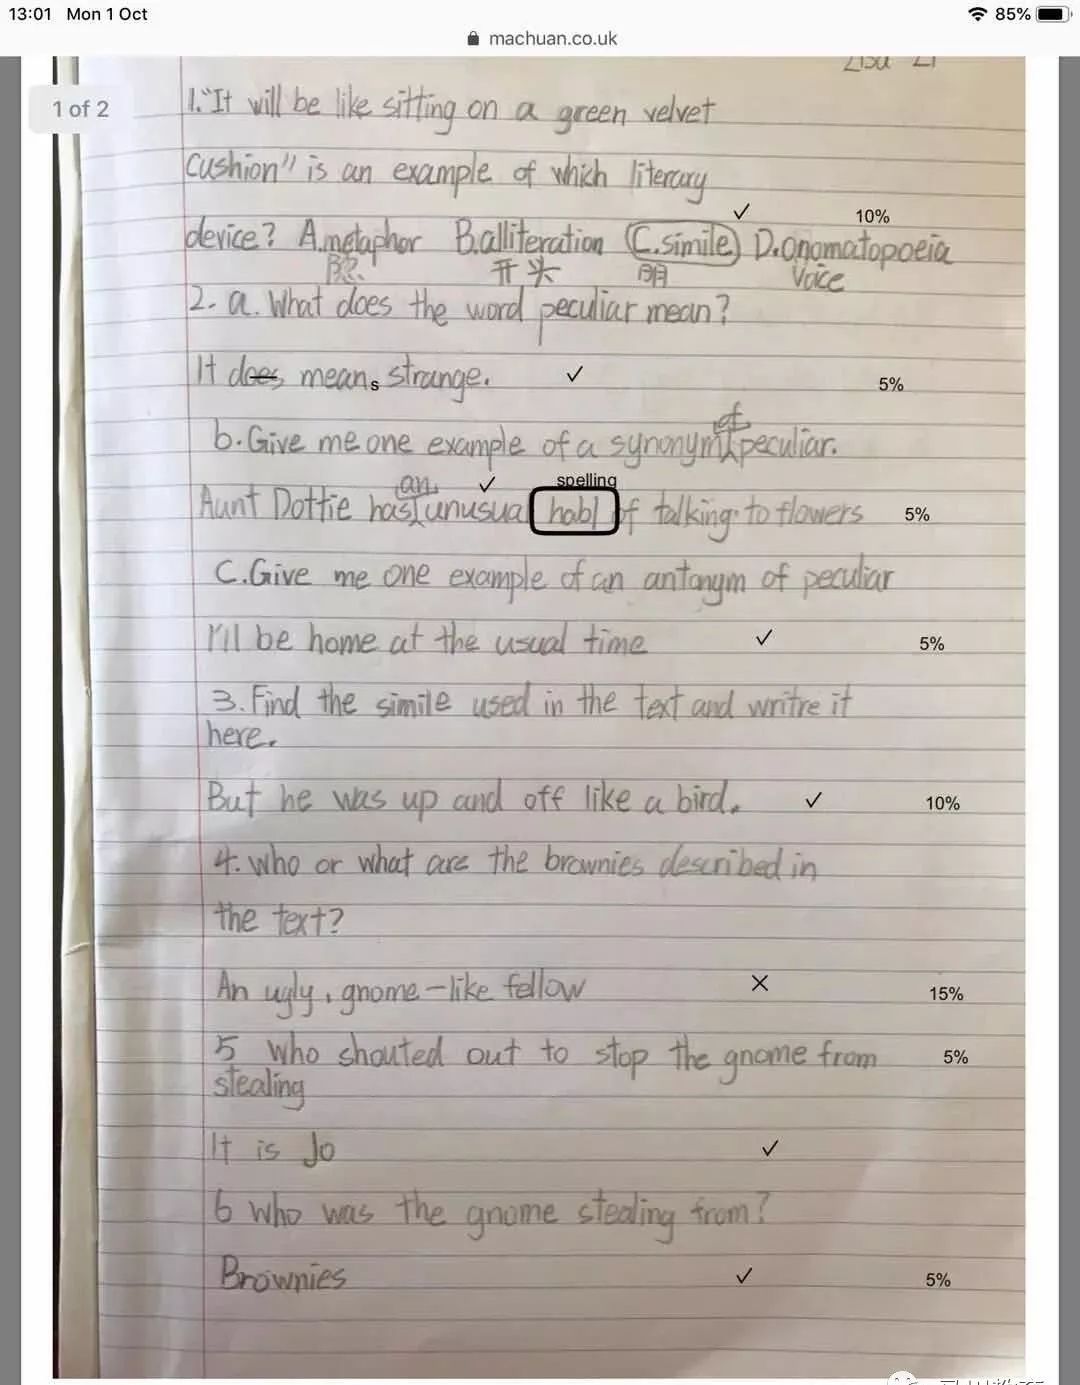 13:01 Mon 1 Oct 85%
machuan.co.uk
1 of 2
1."It will be like sitting on a green velvet
cushion" is an example of which literary
✓ 10%
device? A.metaphor B.alliteration C.simile D.onomatopoeia
开头 明 Voice
2. a. What does the word peculiar mean?
It does means strange. ✓ 5%
of
b. Give me one example of a synonym peculiar.
an ✓ spelling
Aunt Dottie has unusual habl of talking to flowers 5%
C. Give me one example of an antonym of peculiar
I'll be home at the usual time ✓ 5%
3. Find the simile used in the text and writre it
here.
But he was up and off like a bird. ✓ 10%
4. Who or what are the brownies described in
the text?
An ugly, gnome-like fellow × 15%
5 Who shouted out to stop the gnome from 5%
stealing
It is Jo ✓
6 Who was the gnome stealing from?
Brownies ✓ 5%